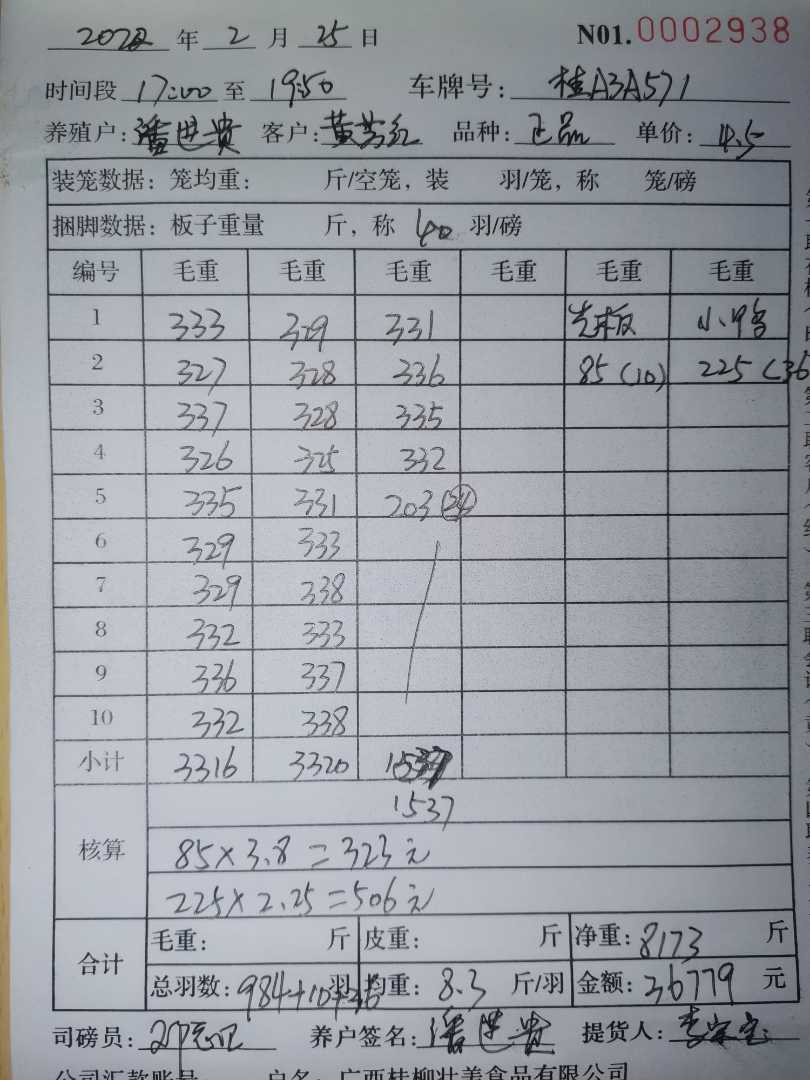 2022 年 2 月 25 日 NO1.0002938
时间段 17:00 至 19:50 车牌号: 桂A3A571
养殖户: 潘进贵 客户: 黄芳红 品种: 正品 单价: 4.5
装笼数据: 笼均重: 斤/空笼, 装 羽/笼, 称 笼/磅
捆脚数据: 板子重量 斤, 称 40 羽/磅
编号 毛重 毛重 毛重 毛重 毛重 毛重
1 333 329 331 光板 小鸭
2 327 328 336 85(10) 225(36
3 337 328 335
4 326 325 332
5 335 331 203 (24)
6 329 333
7 329 338
8 332 333
9 336 337
10 332 338
小计 3316 3320 1537
1537
核算
85×3.8=323元
225×2.25=506元
合计 毛重: 斤 皮重: 斤 净重: 8173 斤
总羽数: 984+10+36 羽 均重: 8.3 斤/羽 金额: 36779 元
司磅员: 养户签名: 潘进贵 提货人: 李
公司汇款账号 户名: 广西桂柳壮美食品有限公司